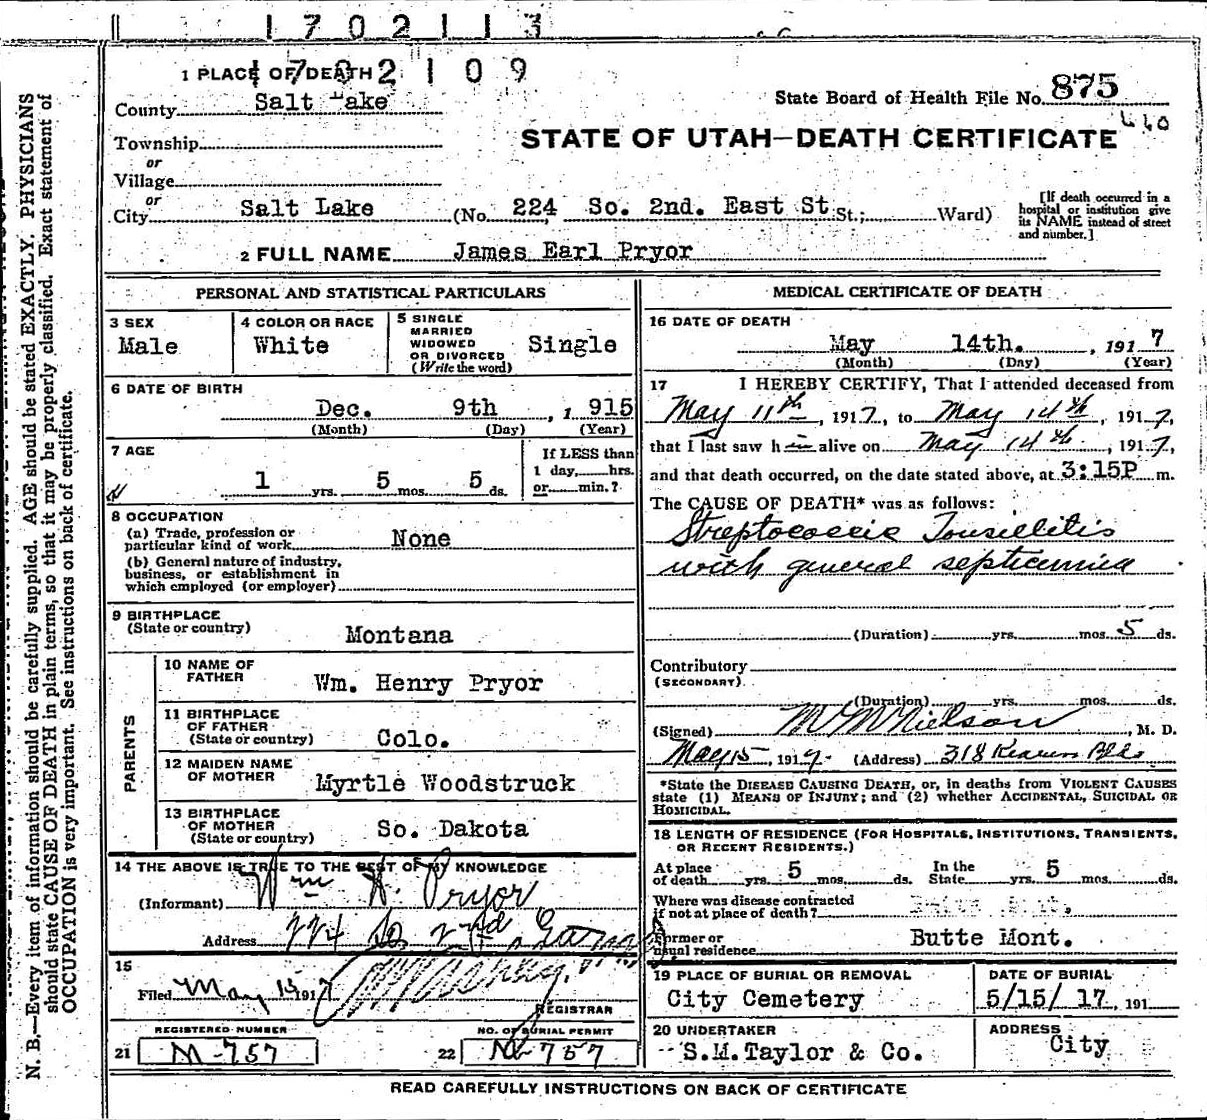 1702113
1702109
1 PLACE OF DEATH
County Salt Lake
State Board of Health File No. 875
Township
or
Village
or
STATE OF UTAH—DEATH CERTIFICATE
City Salt Lake (No. 224 So. 2nd. East St St.; Ward)
[If death occurred in a hospital or institution give its NAME instead of street and number.]
2 FULL NAME James Earl Pryor
PERSONAL AND STATISTICAL PARTICULARS
3 SEX
Male
4 COLOR OR RACE
White
5 SINGLE
MARRIED
WIDOWED
OR DIVORCED
(Write the word)
Single
6 DATE OF BIRTH
Dec. 9th, 1 915
(Month) (Day) (Year)
7 AGE
1 yrs. 5 mos. 5 ds.
If LESS than
1 day, hrs.
or min.?
8 OCCUPATION
(a) Trade, profession or
particular kind of work None
(b) General nature of industry,
business, or establishment in
which employed (or employer)
9 BIRTHPLACE
(State or country)
Montana
PARENTS
10 NAME OF
FATHER
Wm. Henry Pryor
11 BIRTHPLACE
OF FATHER
(State or country)
Colo.
12 MAIDEN NAME
OF MOTHER
Myrtle Woodstruck
13 BIRTHPLACE
OF MOTHER
(State or country)
So. Dakota
14 THE ABOVE IS TRUE TO THE BEST OF MY KNOWLEDGE
(Informant) Wm H. Pryor
Address 224 So 2nd East
15
Filed May 15 1917
REGISTRAR
REGISTERED NUMBER
21 M-757
NO. OF BURIAL PERMIT
22 757
MEDICAL CERTIFICATE OF DEATH
16 DATE OF DEATH
May 14th. , 191 7
(Month) (Day) (Year)
17 I HEREBY CERTIFY, That I attended deceased from
May 11th, 1917, to May 14th, 1917,
that I last saw h im alive on May 14th, 1917,
and that death occurred, on the date stated above, at 3:15P m.
The CAUSE OF DEATH* was as follows:
Streptococcic Tonsillitis
with general septicemia
(Duration) yrs. mos. 5 ds.
Contributory
(SECONDARY)
(Duration) yrs. mos. ds.
(Signed) M M Nielson, M. D.
May 15, 1917. (Address) 318 Kearns Bldg
*State the DISEASE CAUSING DEATH, or, in deaths from VIOLENT CAUSES
state (1) MEANS OF INJURY; and (2) whether ACCIDENTAL, SUICIDAL OR
HOMICIDAL.
18 LENGTH OF RESIDENCE (FOR HOSPITALS, INSTITUTIONS, TRANSIENTS,
OR RECENT RESIDENTS.)
At place
of death yrs. 5 mos. ds.
In the
State yrs. 5 mos. ds.
Where was disease contracted
if not at place of death?
Former or
usual residence Butte Mont.
19 PLACE OF BURIAL OR REMOVAL
City Cemetery
DATE OF BURIAL
5/15/ 17, 191
20 UNDERTAKER
S.M.Taylor & Co.
ADDRESS
City
READ CAREFULLY INSTRUCTIONS ON BACK OF CERTIFICATE
N. B.—Every item of information should be carefully supplied. AGE should be stated EXACTLY. PHYSICIANS
should state CAUSE OF DEATH in plain terms, so that it may be properly classified. Exact statement of
OCCUPATION is very important. See instructions on back of certificate.